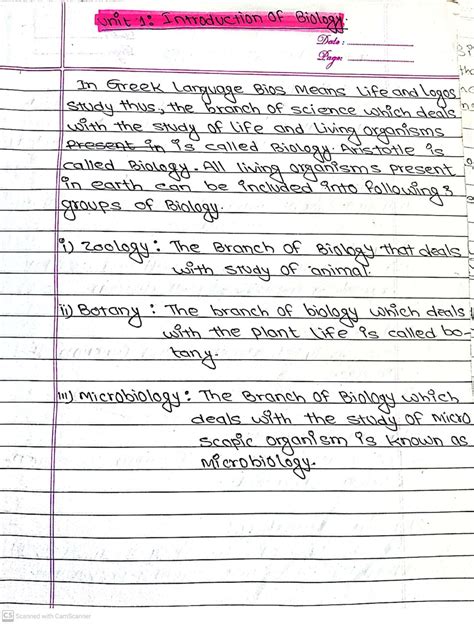 Unit 1: Introduction of Biology.
Date:
Page:
In Greek Language Bios Means Life and logos
study thus, the branch of science which deals
with the study of life and Living organisms
present in is called Biology. Aristotle is
called Biology. All living organisms present
in earth can be included into following 3
groups of Biology.
i) Zoology: The Branch of Biology that deals
with study of animal.
ii) Botany: The branch of biology which deals
with the plant life is called bo-
tany.
iii) Microbiology: The Branch of Biology which
deals with the study of micro
scopic organism is known as
Microbiology.
CS Scanned with CamScanner